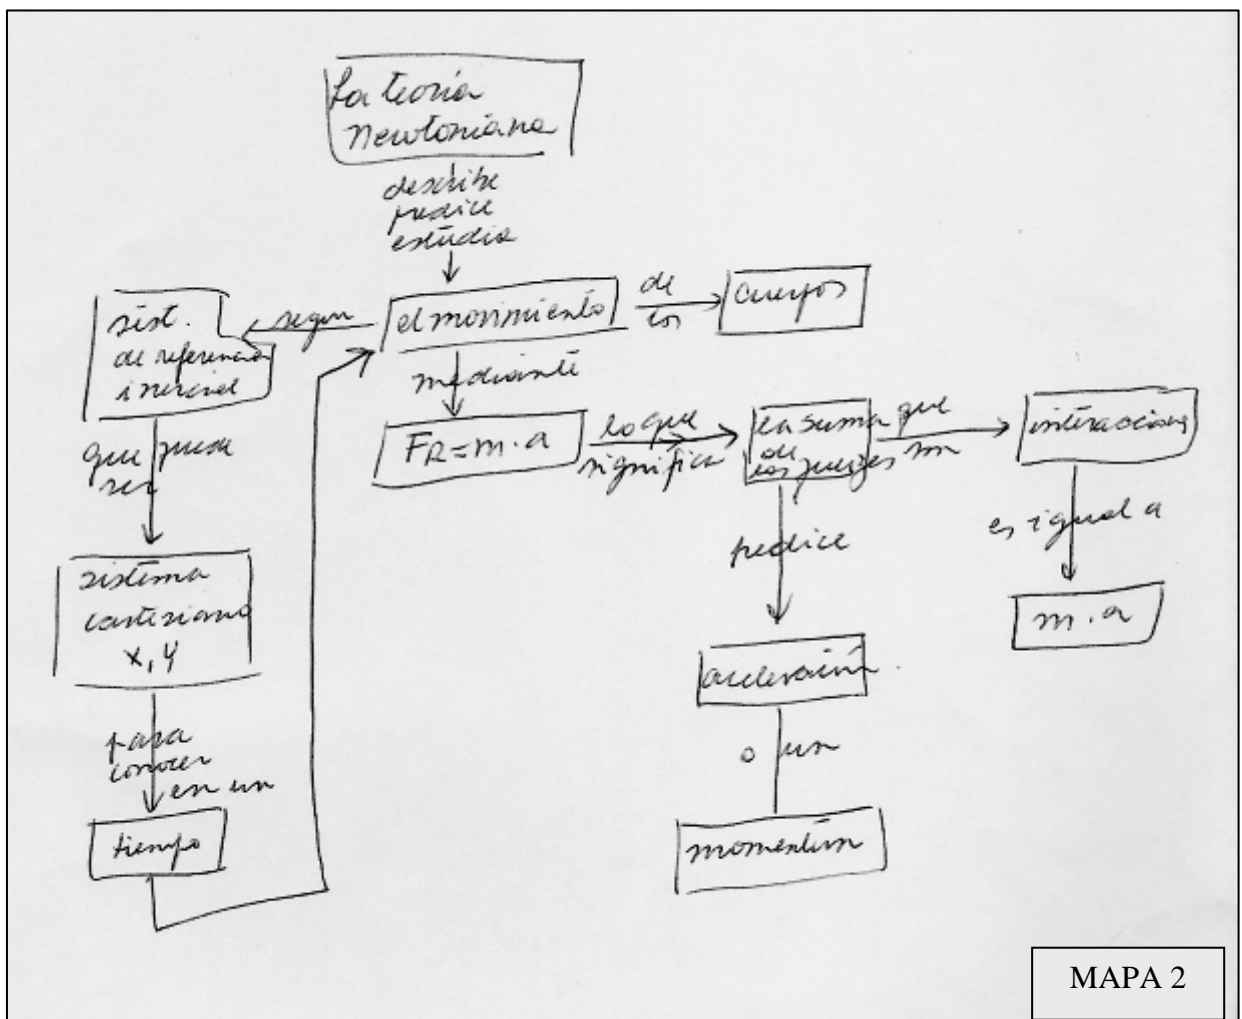 La teoria
Newtoniana
describe
predice
estudia
el movimiento
de
los
cuerpos
segun
sist.
de referencia
inercial
que puede
ser
sistema
cartesiano
x, y
para
conocer
en un
tiempo
mediante
FR = m. a
lo que
significa
la suma
de
las fuerzas
que
son
interacciones
es igual a
m. a
predice
aceleración
o un
momentun
MAPA 2